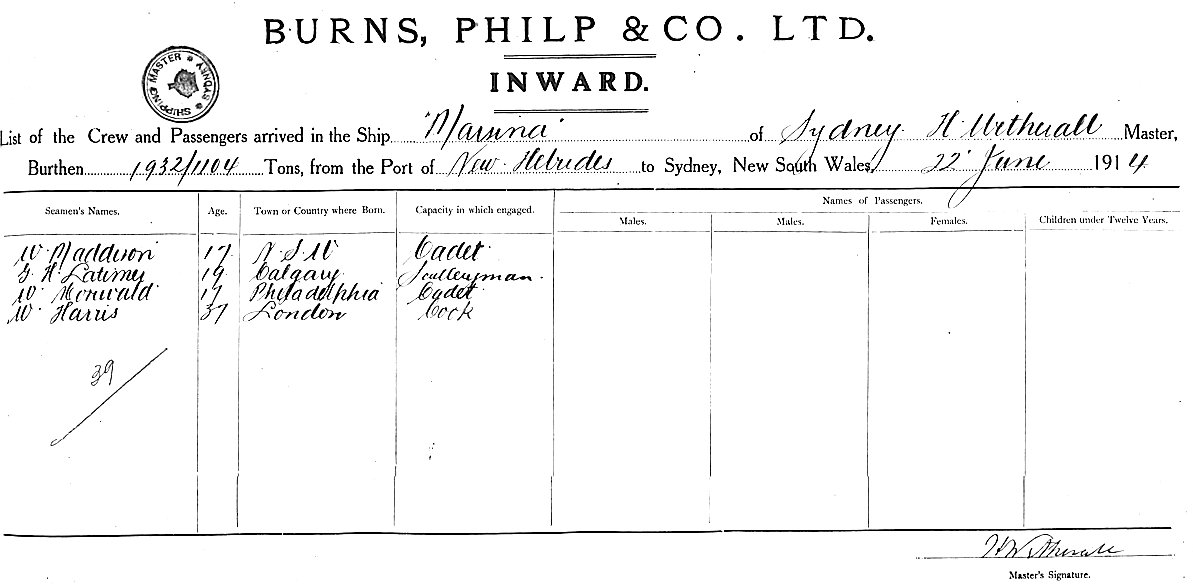 BURNS, PHILP & CO. LTD.
INWARD.
SHIPPING MASTER SYDNEY
List of the Crew and Passengers arrived in the Ship "Marsina" of Sydney H Wetherall Master,
Burthen 1932/1104 Tons, from the Port of New Hebrides to Sydney, New South Wales, 22 June 1914
Seamen's Names. Age. Town or Country where Born. Capacity in which engaged. Names of Passengers.
Males. Males. Females. Children under Twelve Years.
W. Maddison 17 N.S.W Cadet
H. Latimer 19 Calgary Sculleryman.
W. 17 Philadelphia Cadet
W. Harris 37 London Cook
39
H Wetherall
Master's Signature.